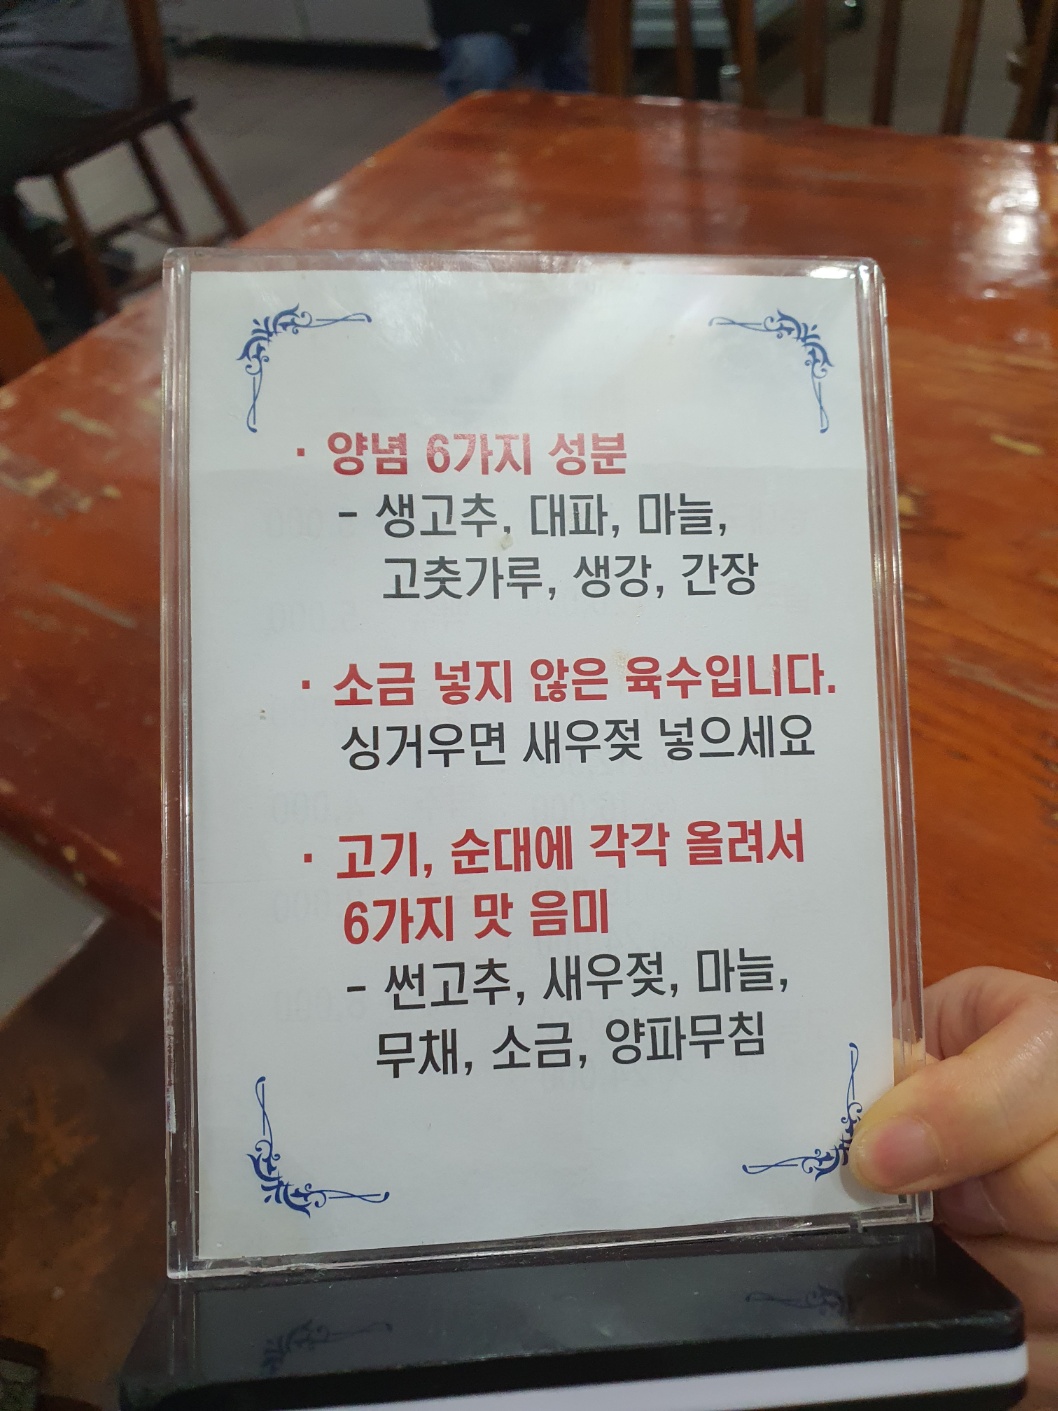 · 양념 6가지 성분
- 생고추, 대파, 마늘,
고춧가루, 생강, 간장
· 소금 넣지 않은 육수입니다.
싱거우면 새우젖 넣으세요
· 고기, 순대에 각각 올려서
6가지 맛 음미
- 썬고추, 새우젖, 마늘,
무채, 소금, 양파무침